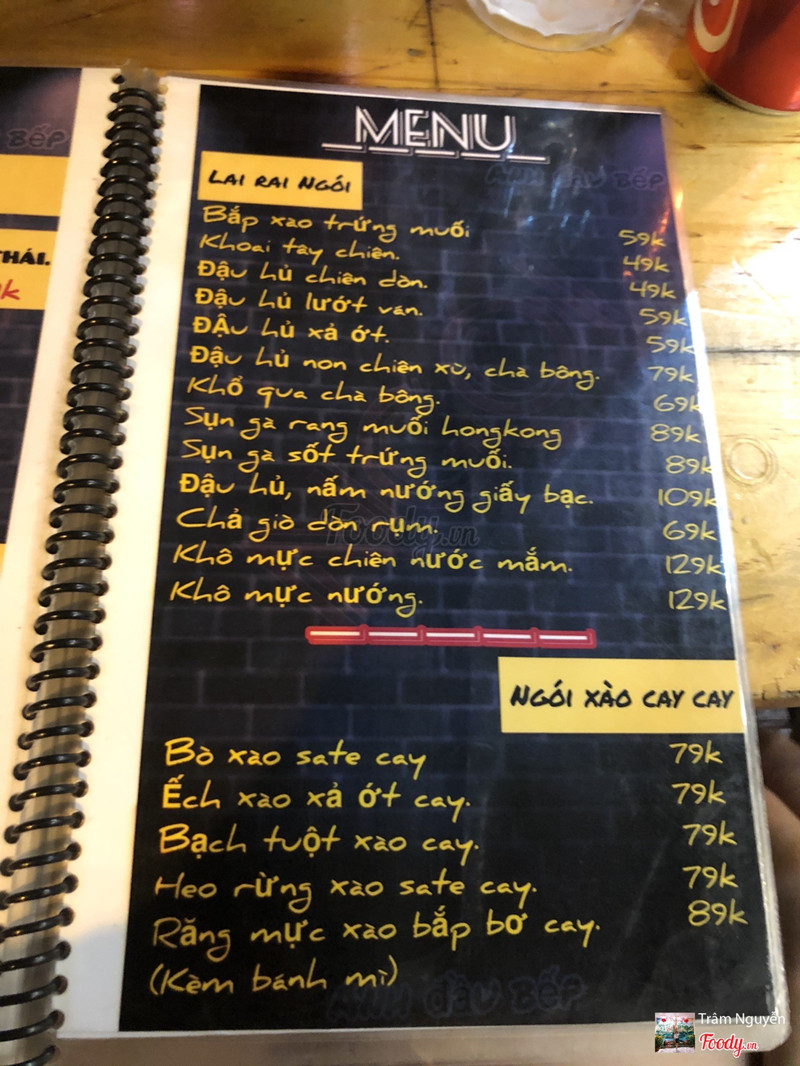 BẾP
THÁI.
k
MENU
ANH ĐẦU BẾP
LAI RAI NGÓI
Bắp xào trứng muối 59k
Khoai tây chiên. 49k
Đậu hủ chiên dòn. 49k
Đậu hủ lướt ván. 59k
ĐẬu hủ xả ớt. 59k
Đậu hủ non chiên xù, chà bông. 79k
Khổ qua chà bông. 69k
Sụn gà rang muối hongkong 89k
Sụn gà sốt trứng muối. 89k
Đậu hủ, nấm nướng giấy bạc. 109k
Chả giò dòn rụm. 69k
Foody.vn
Khô mực chiên nước mắm. 129k
Khô mực nướng. 129k
NGÓI XÀO CAY CAY
Bò xào sate cay 79k
Ếch xào xả ớt cay. 79k
Bạch tuột xào cay. 79k
Heo rừng xào sate cay. 79k
Răng mực xào bắp bơ cay. 89k
(Kèm bánh mì)
ANH ĐẦU BẾP
Trâm Nguyễn
Foody.vn